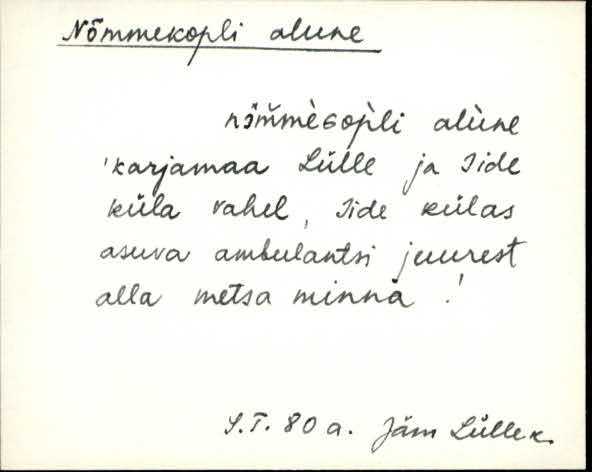 Nõmmekopli alune
nõ̀m̆mèGop̀li alùne
'karjamaa Lülle ja Iide
küla vahel, Iide külas
asuva ambulantsi juurest
alla metsa minna !
S.T. 80 a. Jäm Lülle k.